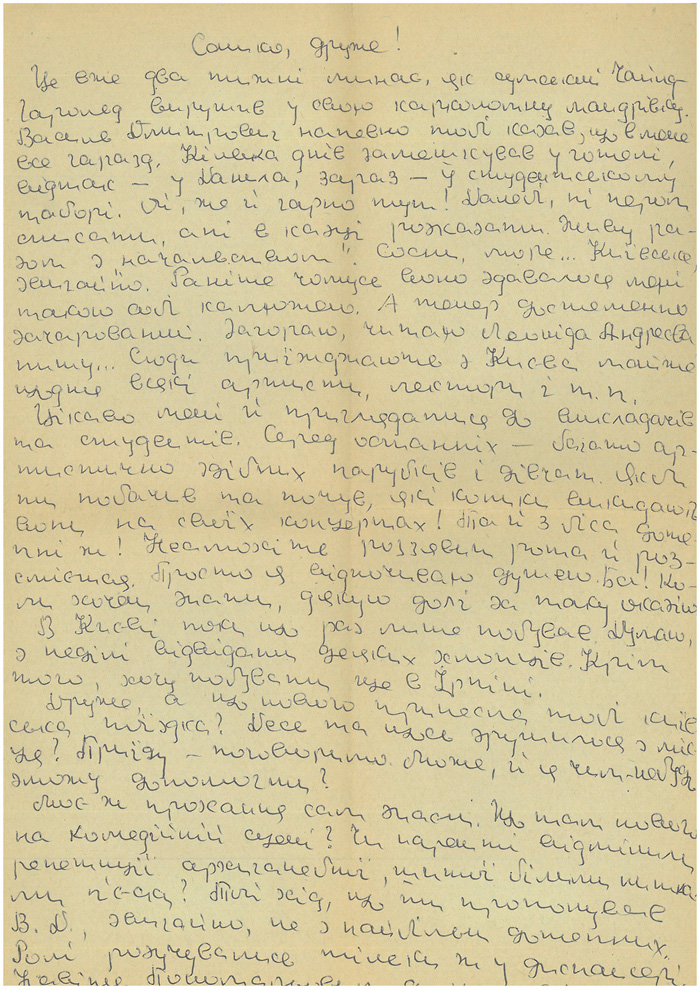 Сашко, друже!
Це вже два тижні минає, як сумський Чайльд-
Гарольд вирушив у свою карколомну мандрівку.
Василь Дмитрович напевно тобі казав, що в мене
все гаразд. Кілька днів замешкував у готелі,
відтак — у Данила, зараз — у студентському
таборі. Ой, же й гарно тут! Далебі, ні пером
списати, ані в казці розказати. Живу ра-
зом з "начальством". Сосни, море... Київське,
звичайно. Раніше чомусь воно здавалося мені
такою собі калюжею. А тепер достеменно
зачарований. Загораю, читаю Леоніда Андреєва
пишу... Сюди приїжджають з Києва майже
щодня всякі артисти, лектори і т. п.
Цікаво мені й приглядатися до викладачів
та студентів. Серед останніх — багато ар-
тистично здібних парубків і дівчат. Якби
ти побачив та почув, які коники викидають
вони на своїх концертах! Та й з ліса доте-
пні ж! Неможіте роззявиш рота й роз-
смієшся. Просто я відпочиваю душею. Ба! Ко-
ли хочеш знати, дякую долі за таку оказію
В Києві поки що раз лише побував. Думаю,
з неділі відвідати деяких хлопців. Крім
того, хочу побувати ще в Ірпіні.
Друже, а що нового принесла тобі київ-
ська поїздка? Десь та щось зрушилося з міс-
ця? Приїду — поговоримо. Може, й я чим-небудь
зможу допомогти?
Моє ж прохання сам знаєш. Що там нового
на комедійній сцені? Чи нарешті відмінили
репетиції архиганебної, шитої білими нитка-
ми п'єси? Тої хід, що ти пропонував
В. Д., звичайно, не з найбільш дотепних.
Ролі розучувались тільки ж у диспансері.